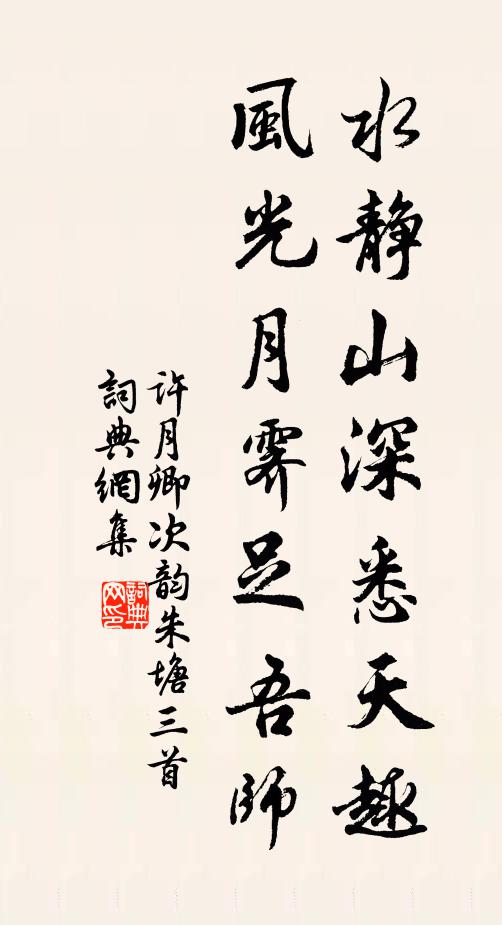 水靜山深悉天趣
風光月霽足吾師
许月卿次韵朱塘三首
詞典網集
詞典网印